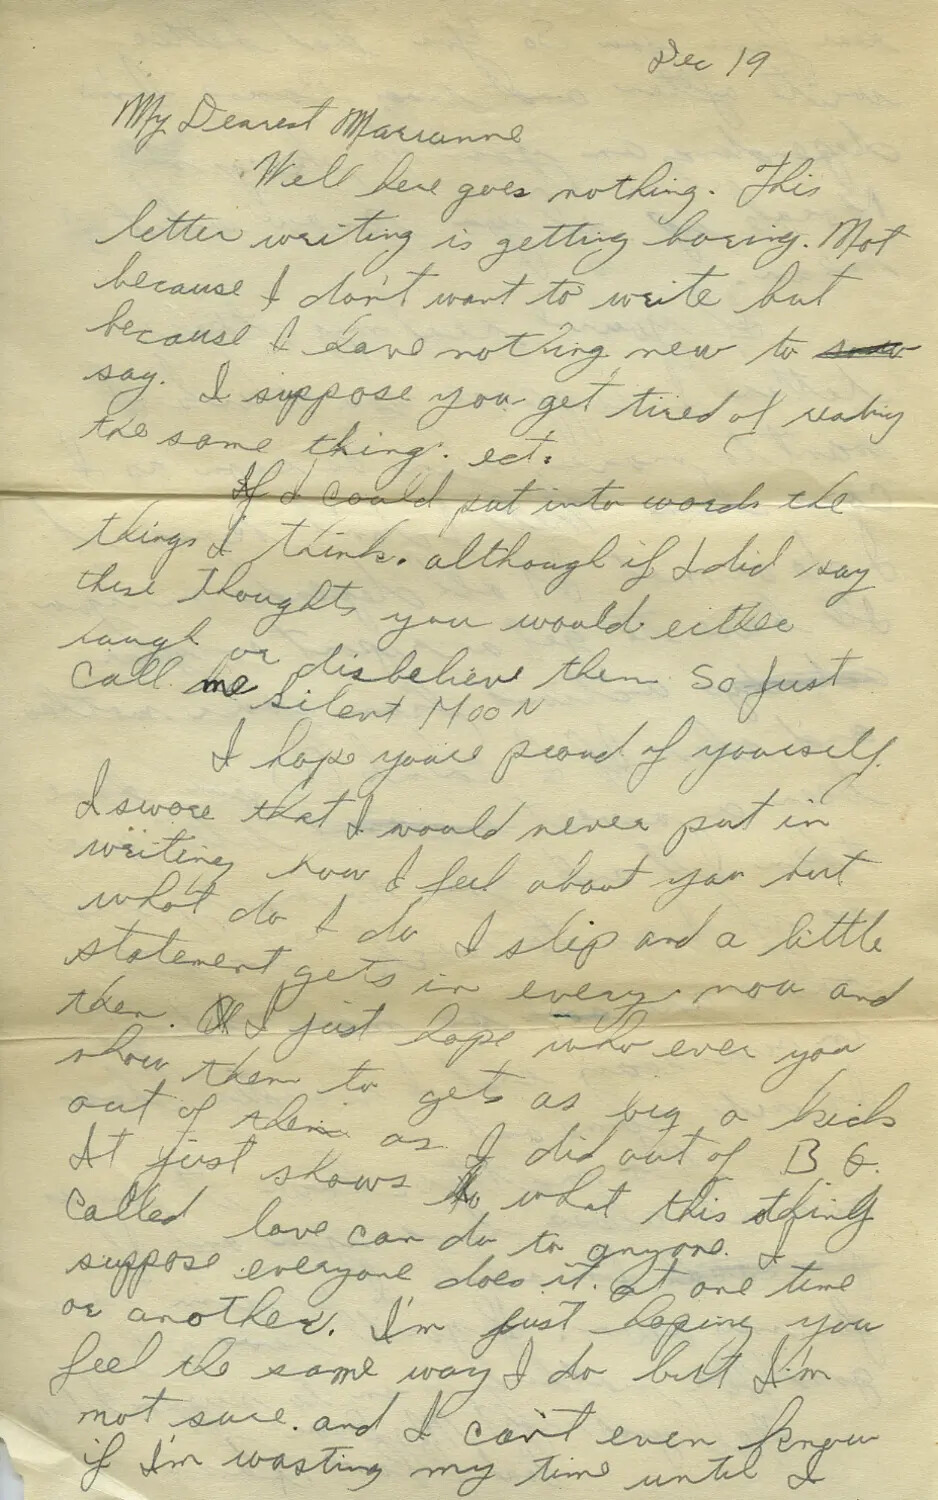 Dec 19
My Dearest Marianne
Well here goes nothing. This
letter writing is getting boring. Not
because I don't want to write but
because I have nothing new to
say. I suppose you get tired of reading
the same thing. ect.
If I could put into words the
things I think. although if I did say
these thoughts you would either
laugh or disbelieve them. So just
call me Silent Moon
I hope you're proud of yourself.
I swore that I would never put in
writing how I feel about you but
what do I do I slip and a little
statement gets in every now and
then. I just hope who ever you
show them to gets as big a kick
out of them as I did out of B G.
It just shows what this thing
called love can do to anyone. I
suppose everyone does it. at one time
or another. I'm just hoping you
feel the same way I do but I'm
not sure. and I can't even know
if I'm wasting my time until I